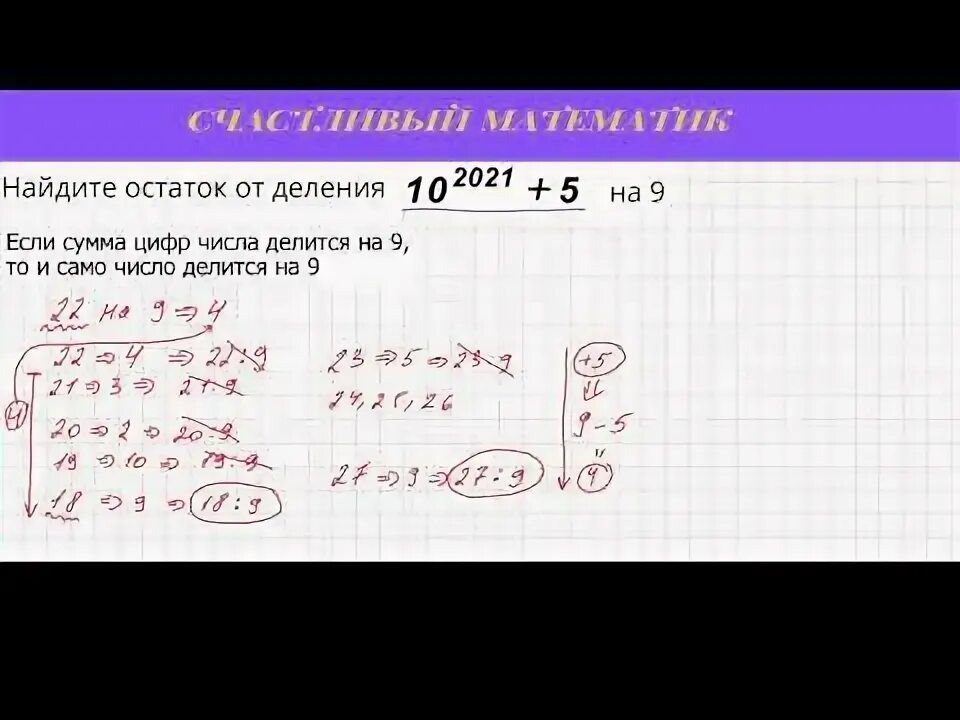 СЧАСТЛИВЫЙ МАТЕМАТИК
Найдите остаток от деления 10^2021 + 5 на 9
Если сумма цифр числа делится на 9,
то и само число делится на 9
22 на 9 => 4
22 => 4 => 22 : 9
21 => 3 => 21 : 9
4
20 => 2 => 20 : 9
19 => 10 => 19 : 9
18 => 9 => 18 : 9
23 => 5 => 23 : 9
24, 25, 26
27 => 9 => 27 : 9
+5
9 - 5
"
4